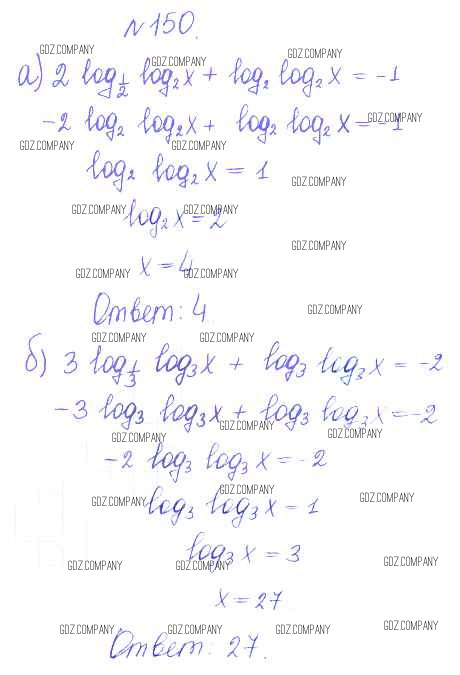 №150.
GDZ.COMPANY GDZ.COMPANY GDZ.COMPANY
а) 2 log_{1/2} log₂x + log₂ log₂x = -1
-2 log₂ log₂x + log₂ log₂x = -1
GDZ.COMPANY
GDZ.COMPANY GDZ.COMPANY
log₂ log₂x = 1
GDZ.COMPANY
GDZ.COMPANY GDZ.COMPANY
log₂x = 2
GDZ.COMPANY
x = 4
GDZ.COMPANY GDZ.COMPANY
Ответ: 4
GDZ.COMPANY
GDZ.COMPANY GDZ.COMPANY
б) 3 log_{1/3} log₃x + log₃ log₃x = -2
-3 log₃ log₃x + log₃ log₃x = -2
GDZ.COMPANY GDZ.COMPANY GDZ.COMPANY
-2 log₃ log₃x = -2
GDZ.COMPANY GDZ.COMPANY GDZ.COMPANY
log₃ log₃x = 1
log₃x = 3
GDZ.COMPANY GDZ.COMPANY GDZ.COMPANY
x = 27
GDZ.COMPANY GDZ.COMPANY GDZ.COMPANY GDZ.COMPANY
Ответ: 27.